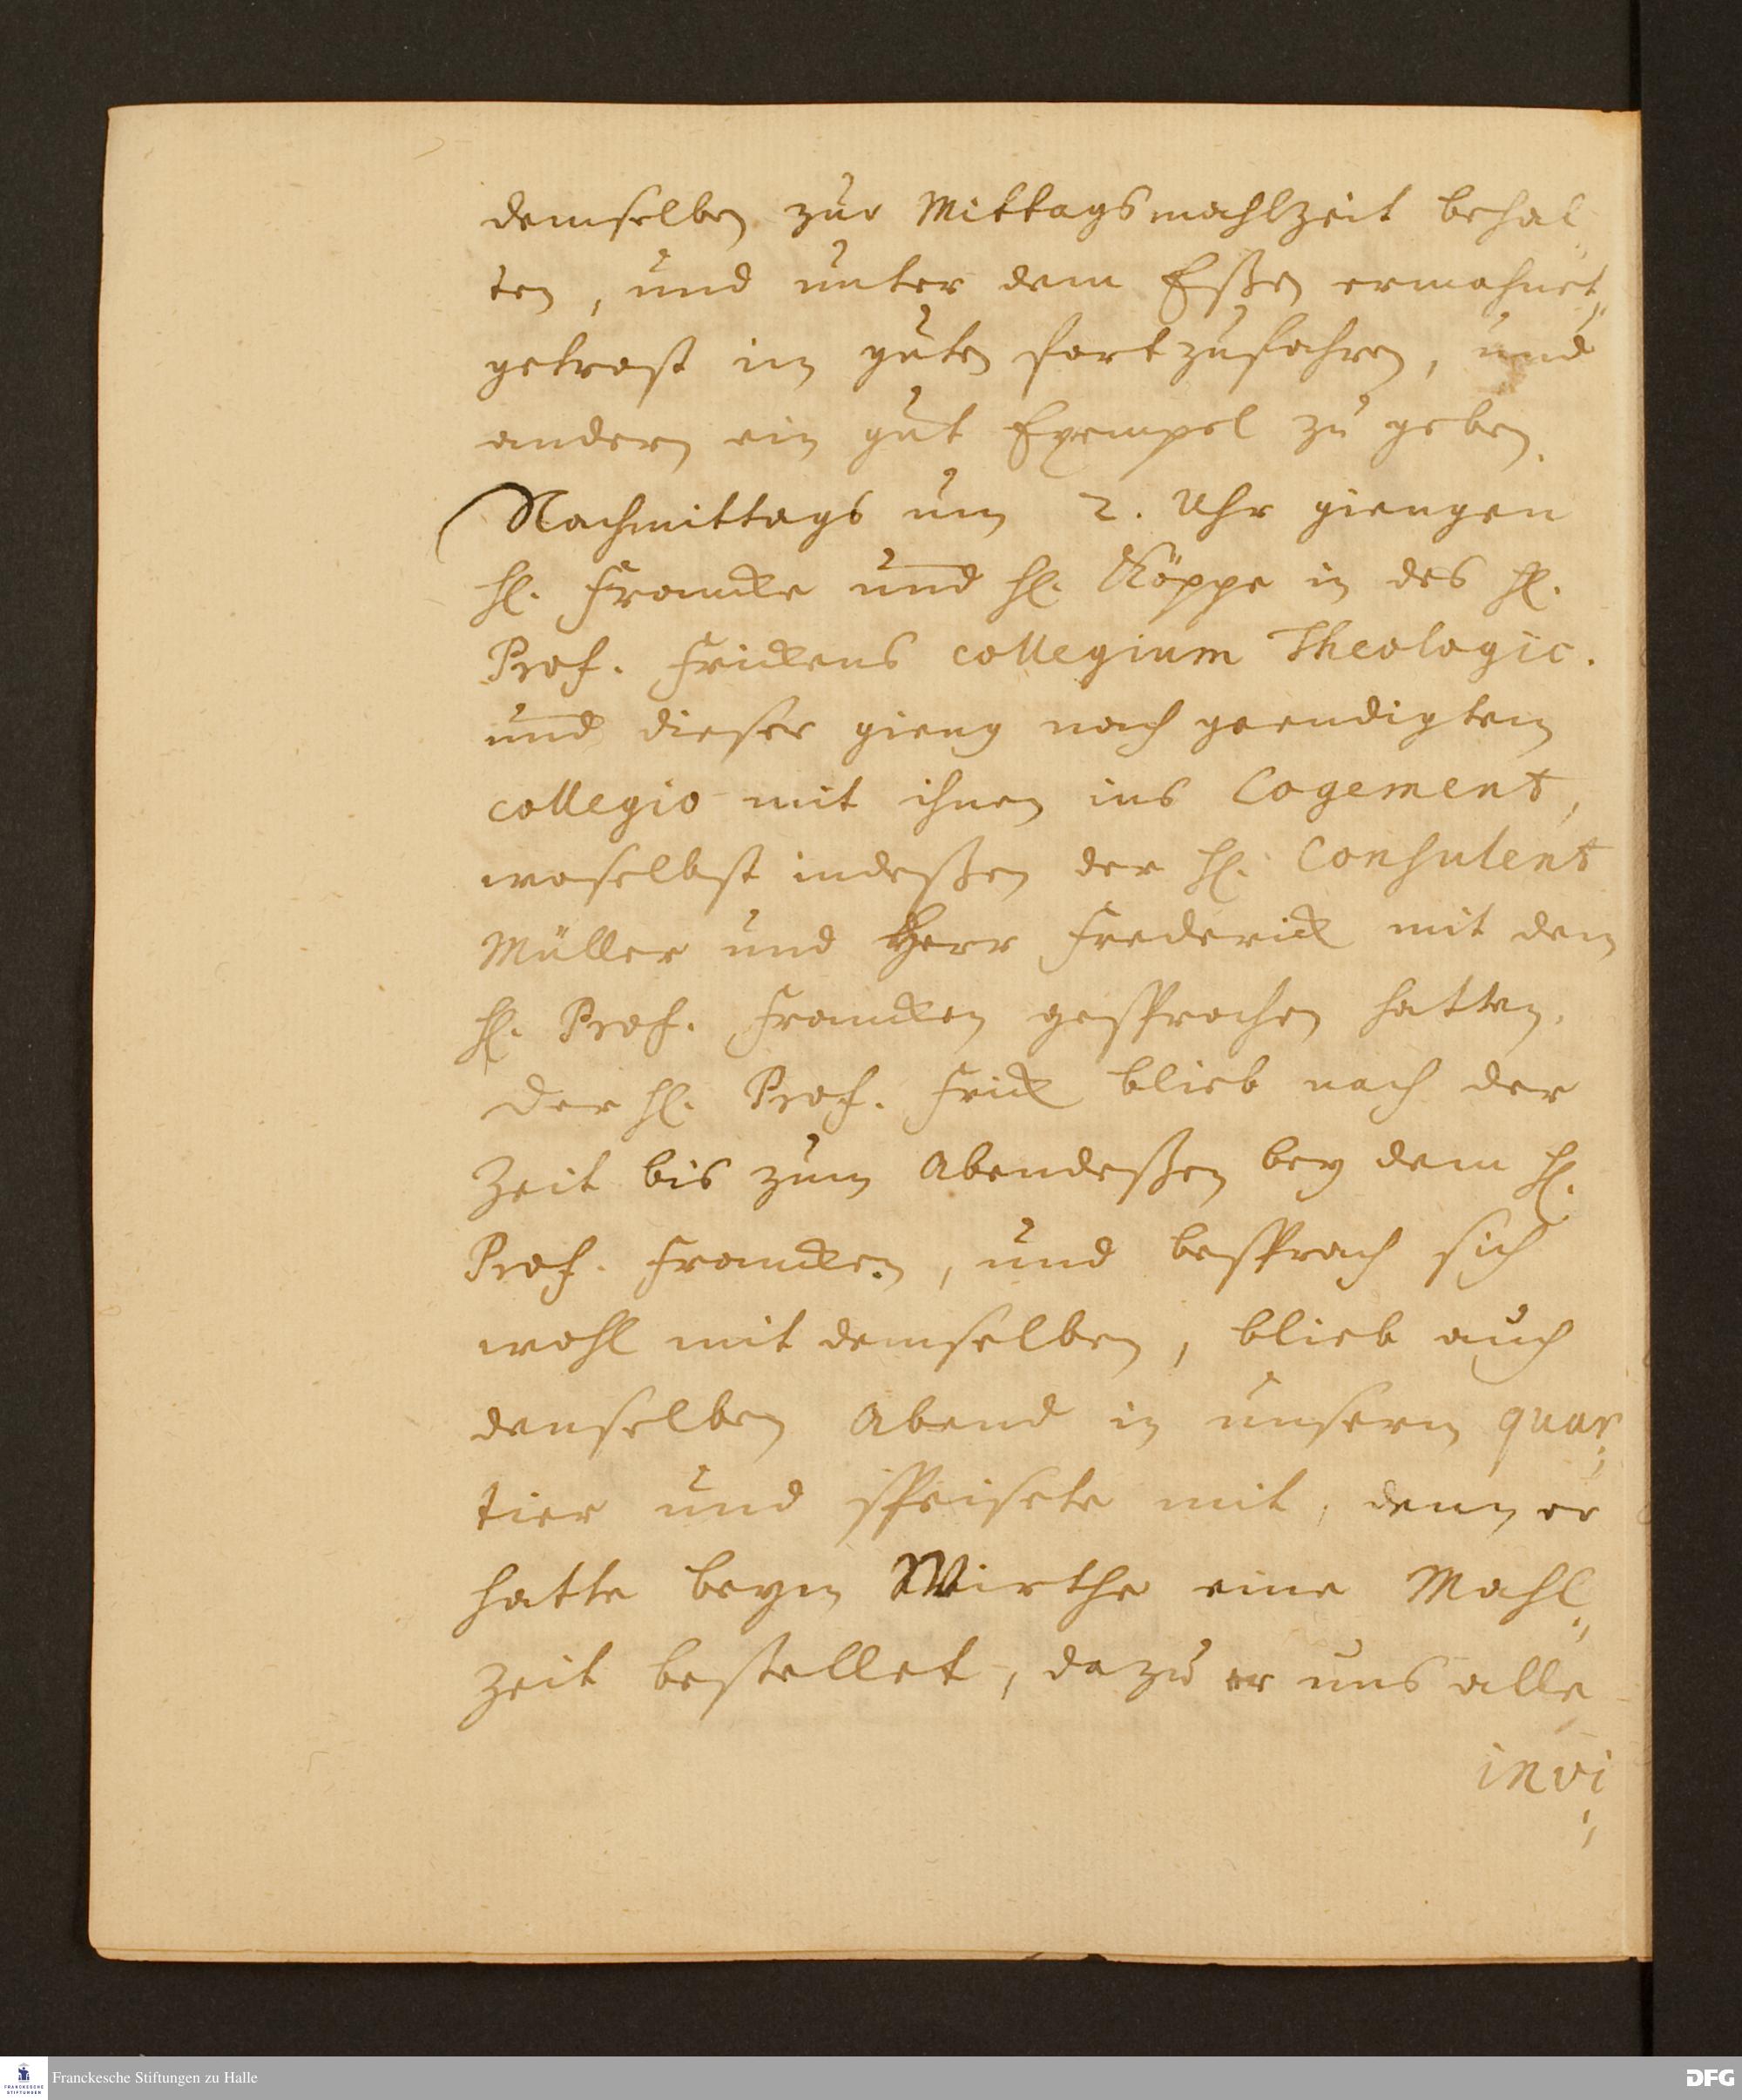 demselben zur Mittagsmahlzeit behal-
ten, und unter dem Eßen ermahnet,
getrost im guten fortzufahren, und
andern ein gut Exempel zu geben.
Nachmittags um 2. Uhr giengen
H. Francke und H. Köppe in des H.
Prof. Frickens collegium Theologic.
und dieser gieng nach geendigtem
collegio mit ihnen ins Logement,
woselbst indeßen der H. Consulent
Müller und Herr Frederick mit dem
H. Prof. Francken gesprochen hatten.
Der H. Prof. Frick blieb nach der
Zeit bis zum Abendeßen bey dem H.
Prof. Francken, und besprach sich
wohl mit demselben, blieb auch
denselben Abend in unserm quar-
tier und speisete mit, denn er
hatte beym Wirthe eine Mahl-
zeit bestellet, dazu er uns alle
invi-
Franckesche Stiftungen zu Halle
FRANCKESCHE STIFTUNGEN
DFG